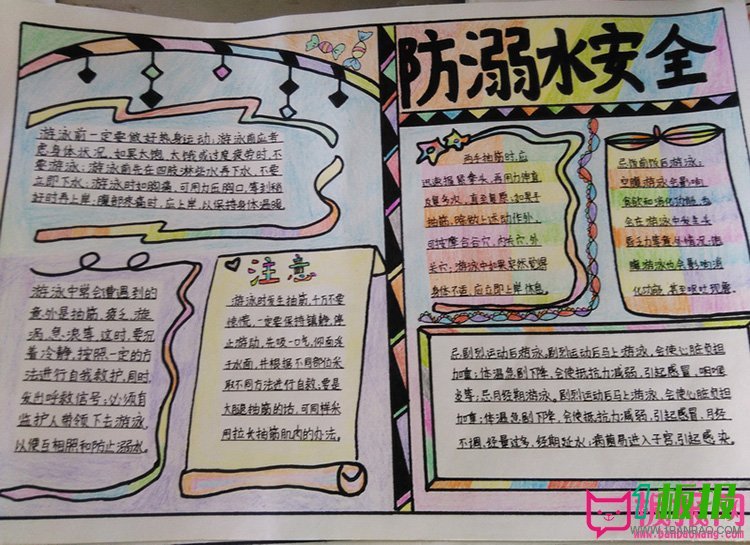 防溺水安全
游泳前一定要做好热身运动;游泳前应考
虑身体状况,如果太饱、太饿或过度疲劳时,不
要游泳;游泳前先在四肢淋些水再下水,不要
立即下水;游泳时如胸痛,可用力压胸口,等到稍
好时再上岸;腹部疼痛时,应上岸,以保持身体温暖
游泳中常会遭遇到的
意外是抽筋、疲乏、漩
涡、急浪等,这时,要沉
着冷静,按照一定的方
法进行自我救护,同时,
发出呼救信号;必须有
监护人带领下去游泳,
以便互相照和防止溺水。
注意
游泳时发生抽筋,千万不要
惊慌,一定要保持镇静,停
止游动,先吸一口气,仰面浮
于水面,并根据不同部位采
取不同方法进行自救,要是
大腿抽筋的话,可同样采
用拉长抽筋肌肉的办法。
两手抽筋时,应
迅速握紧拳头,再用力伸直
反复多次,直至复原;如果手
抽筋,除做上述动作外,
可按摩合谷穴、内关穴、外
关穴;游泳中如果突然觉得
身体不适,应立即上岸休息。
忌饭前饭后游泳;
空腹游泳会影响
食欲和消化功能,也
会在游泳中发生头
昏乏力等意外情况;饱
腹游泳也会影响消
化功能,甚至呕吐现象
忌剧烈运动后游泳,剧烈运动后马上游泳,会使心脏负担
加重;体温急剧下降,会使抵抗力减弱,引起感冒、咽喉
炎等;忌月经期游泳。剧烈运动后马上游泳,会使心脏负担
加重;体温急剧下降,会使抵抗力减弱,引起感冒,月经
不调,经量过多,经期延长;病菌易进入子宫,引起感染
WWW.1BANBAO.COM
www.banbaowang.com